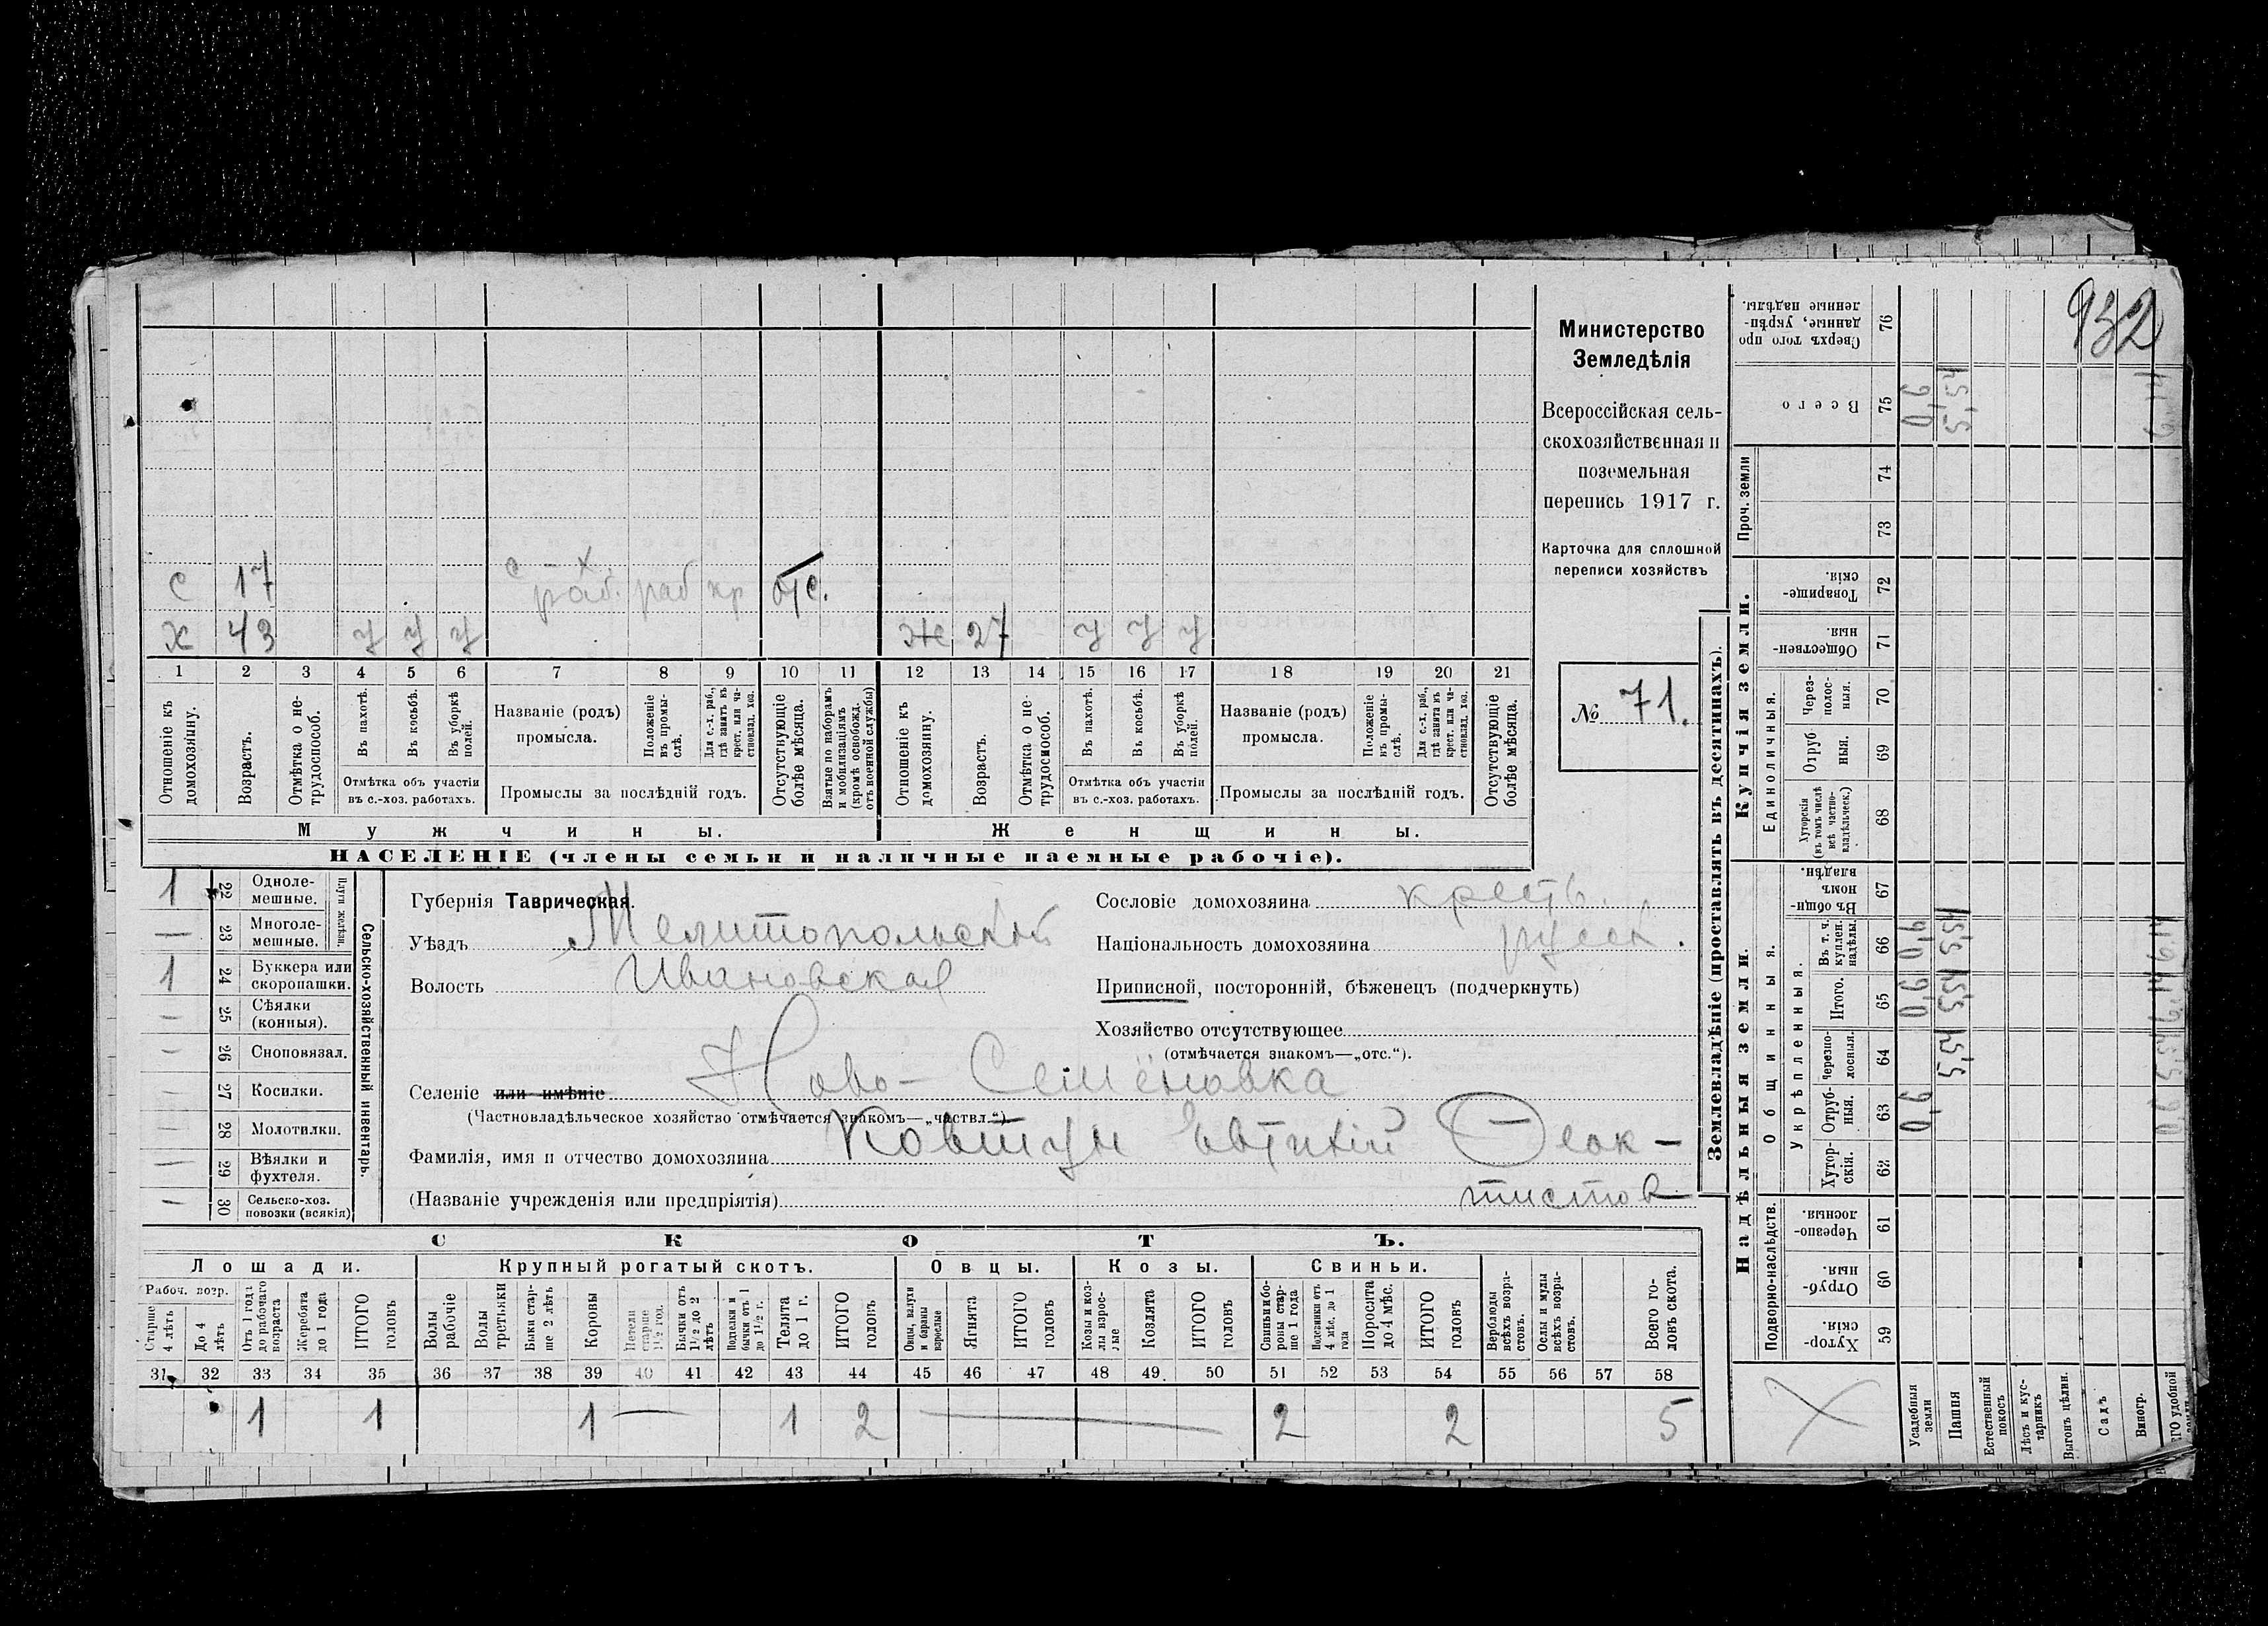 932
Министерство
Земледѣлія
Всероссійская сель-
скохозяйственная и
поземельная
перепись 1917 г.
Карточка для сплошной
переписи хозяйствъ
№ 71.
с х.
С 17 раб. раб кр отс.
Х 43 у у у Ж 27 у у у
1 2 3 4 5 6 7 8 9 10 11 12 13 14 15 16 17 18 19 20 21
Отношеніе къ домохозяину.
Возрастъ.
Отмѣтка о не-трудоспособ.
Въ пахотѣ.
Въ косьбѣ.
Въ уборкѣ полей.
Отмѣтка объ участіи
въ с.-хоз. работахъ.
Названіе (родъ)
промысла.
Положеніе въ промы-слѣ.
Для с.-х. раб., гдѣ занятъ въ крест. или ча-стновлад. хоз.
Промыслы за послѣдній годъ.
Отсутствующіе болѣе мѣсяца.
Взятые по наборамъ и мобилизаціямъ (кромѣ освобожд. отъ военной службы)
Отношеніе къ домохозяину.
Возрастъ.
Отмѣтка о не-трудоспособ.
Въ пахотѣ.
Въ косьбѣ.
Въ уборкѣ полей.
Отмѣтка объ участіи
въ с.-хоз. работахъ.
Названіе (родъ)
промысла.
Положеніе въ промы-слѣ.
Для с.-х. раб., гдѣ занята въ крест. или ча-стновлад. хоз.
Промыслы за послѣдній годъ.
Отсутствующіе болѣе мѣсяца.
Мужчины. Женщины.
НАСЕЛЕНІЕ (члены семьи и наличные наемные рабочіе).
Сельско-хозяйственный инвентарь.
Плуги желѣзн.
1 22 Одноле-мешные.
— 23 Многоле-мешные.
1 24 Буккера или скоропашки.
— 25 Сѣялки (конныя).
— 26 Сноповязал.
— 27 Косилки.
— 28 Молотилки.
— 29 Вѣялки и фухтеля.
— 30 Сельско-хоз. повозки (всякія)
Губернія Таврическая.
Уѣздъ Мелитопольскій
Волость Ивановская
Сословіе домохозяина крестъ.
Національность домохозяина русск.
Приписной, посторонній, бѣженецъ (подчеркнуть)
Хозяйство отсутствующее
(отмѣчается знакомъ—„отс.“).
Селеніе или имѣніе Ново-Семёновка
(Частновладѣльческое хозяйство отмѣчается знакомъ—„частвл.“)
Фамилія, имя и отчество домохозяина Ковтун Евтихій Ѳеок-
(Названіе учрежденія или предпріятія) тистов
СКОТЪ.
Лошади. Крупный рогатый скотъ. Овцы. Козы. Свиньи.
Рабоч. возр.
Старше 4 лѣтъ
До 4 лѣтъ
Отъ 1 года до рабочаго возраста
Жеребята до 1 года
ИТОГО головъ
Волы рабочіе
Волы третьяки
Быки стар-ше 2 лѣтъ
Коровы
Нетели старше 1½ год.
Бычки отъ 1½ до 2 лѣтъ
Подтелки и бычки отъ 1 до 1½ г.
Телята до 1 г.
ИТОГО головъ
Овцы, валухи и бараны взрослые
Ягнята
ИТОГО головъ
Козы и коз-лы взрос-лые
Козлята
ИТОГО головъ
Свиньи и бо-ровы стар-ше 1 года
Подсвинки отъ 4 мѣс. до 1 года
Поросята до 4 мѣс.
ИТОГО головъ
Верблюды всѣхъ возра-стовъ.
Ослы и мулы всѣхъ возра-стовъ.
Всего го-ловъ скота.
31 32 33 34 35 36 37 38 39 40 41 42 43 44 45 46 47 48 49 50 51 52 53 54 55 56 57 58
1 1 1 — 1 2 — 2 2 5
Землевладѣніе (проставлять въ десятинахъ).
Надѣльныя земли. Купчія земли.
Подворно-наслѣдств.
Общинныя.
Укрѣпленныя.
Единоличныя.
Проч. земли
Хутор-скія. 59
Отруб-ныя. 60
Черезпо-лосныя. 61
Хутор-скія. 62
Отруб-ныя. 63
Черезпо-лосныя. 64
Итого. 65
Въ т. ч. куплен. надѣлы. 66
Въ общи-номъ владѣн. 67
Хуторскія (въ томъ числѣ всѣ частно-владѣльческ.) 68
Отруб ныя. 69
Через-полос-ныя. 70
Обществен-ныя 71
Товарище-скія. 72
73
74
Всего 75
Сверхъ того про данные, укрѣп-ленные надѣлы. 76
Усадебныя земли 0,6 0,6 0,6 0,6
Пашня 5,54 5,54 5,54 5,54
Естественный покосъ
Лѣсъ и кус-тарникъ
Выгонъ цѣлин.
Садъ
Виногр.